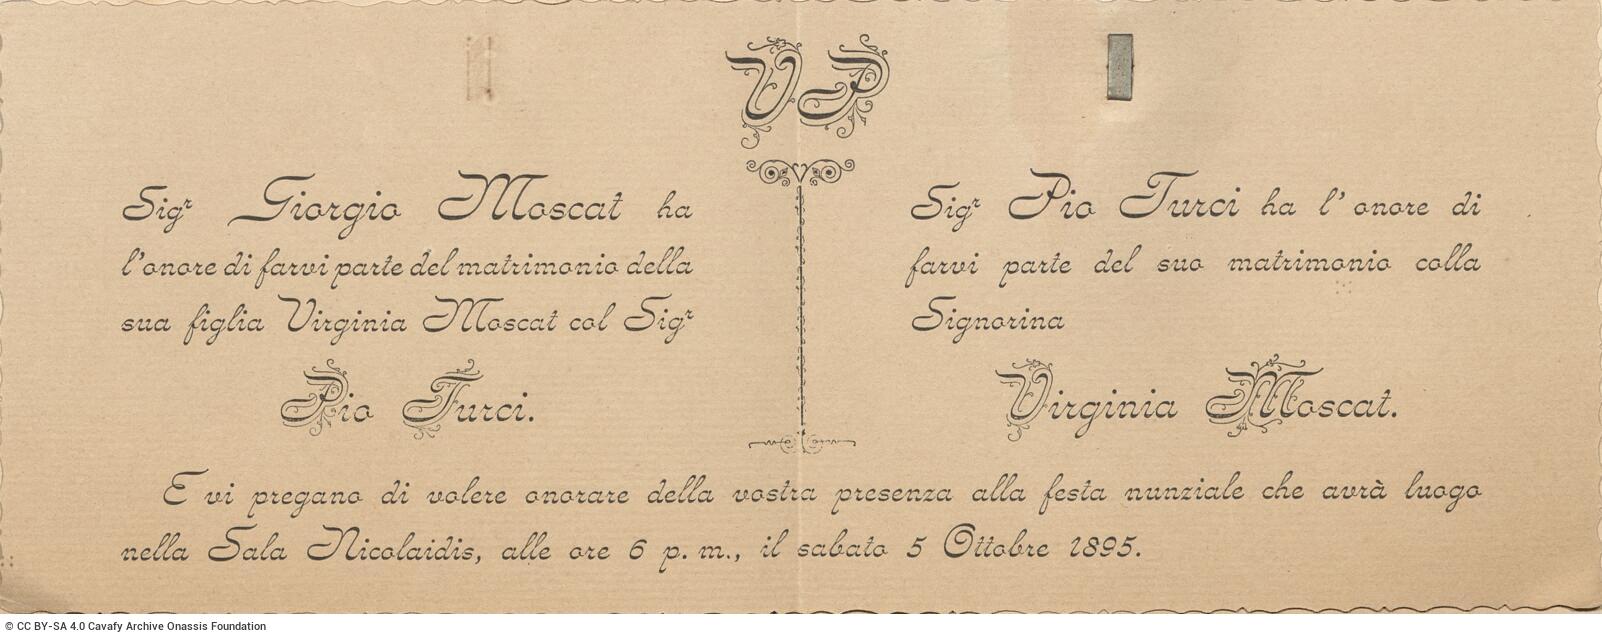 VP
Sigr Giorgio Moscat ha
l'onore di farvi parte del matrimonio della
sua figlia Virginia Moscat col Sigr
Pio Turci.
Sigr Pio Turci ha l'onore di
farvi parte del suo matrimonio colla
Signorina
Virginia Moscat.
E vi pregano di volere onorare della vostra presenza alla festa nunziale che avrà luogo
nella Sala Nicolaidis, alle ore 6 p. m., il sabato 5 Ottobre 1895.
© CC BY-SA 4.0 Cavafy Archive Onassis Foundation